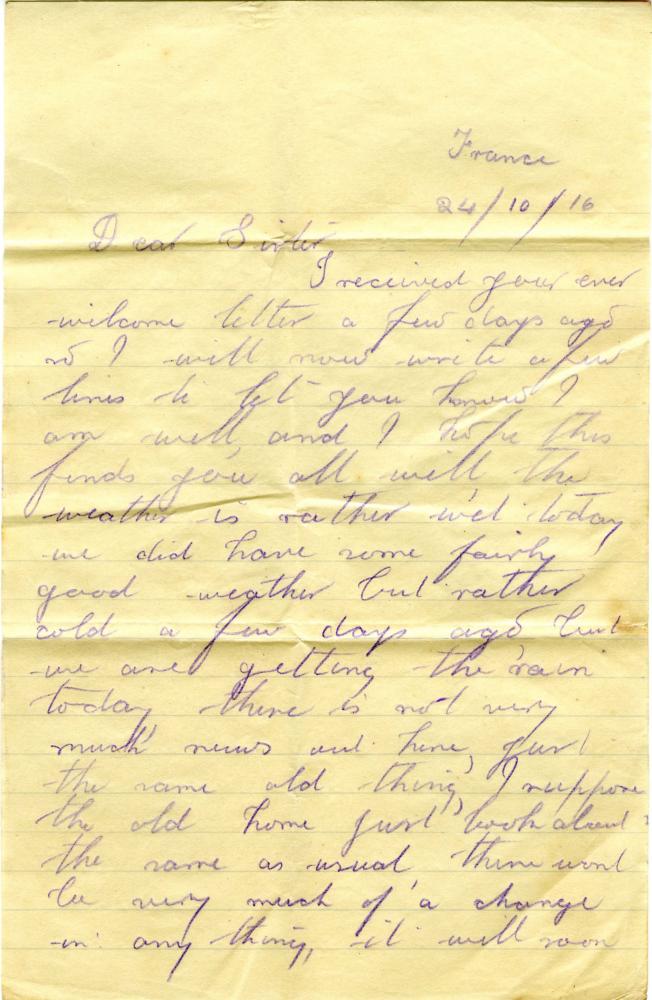 France
24/10/16
Dear Sister
I received your ever
welcome letter a few days ago
so I will now write a few
lines to let you know I
am well and I hope this
finds you all well the
weather is rather wet today
we did have some fairly
good weather but rather
cold a few days ago but
we are getting the rain
today there is not very
much news out here, just
the same old thing, I suppose
the old home just look about
the same as usual there wont
be very much of a change
in any thing, it will soon